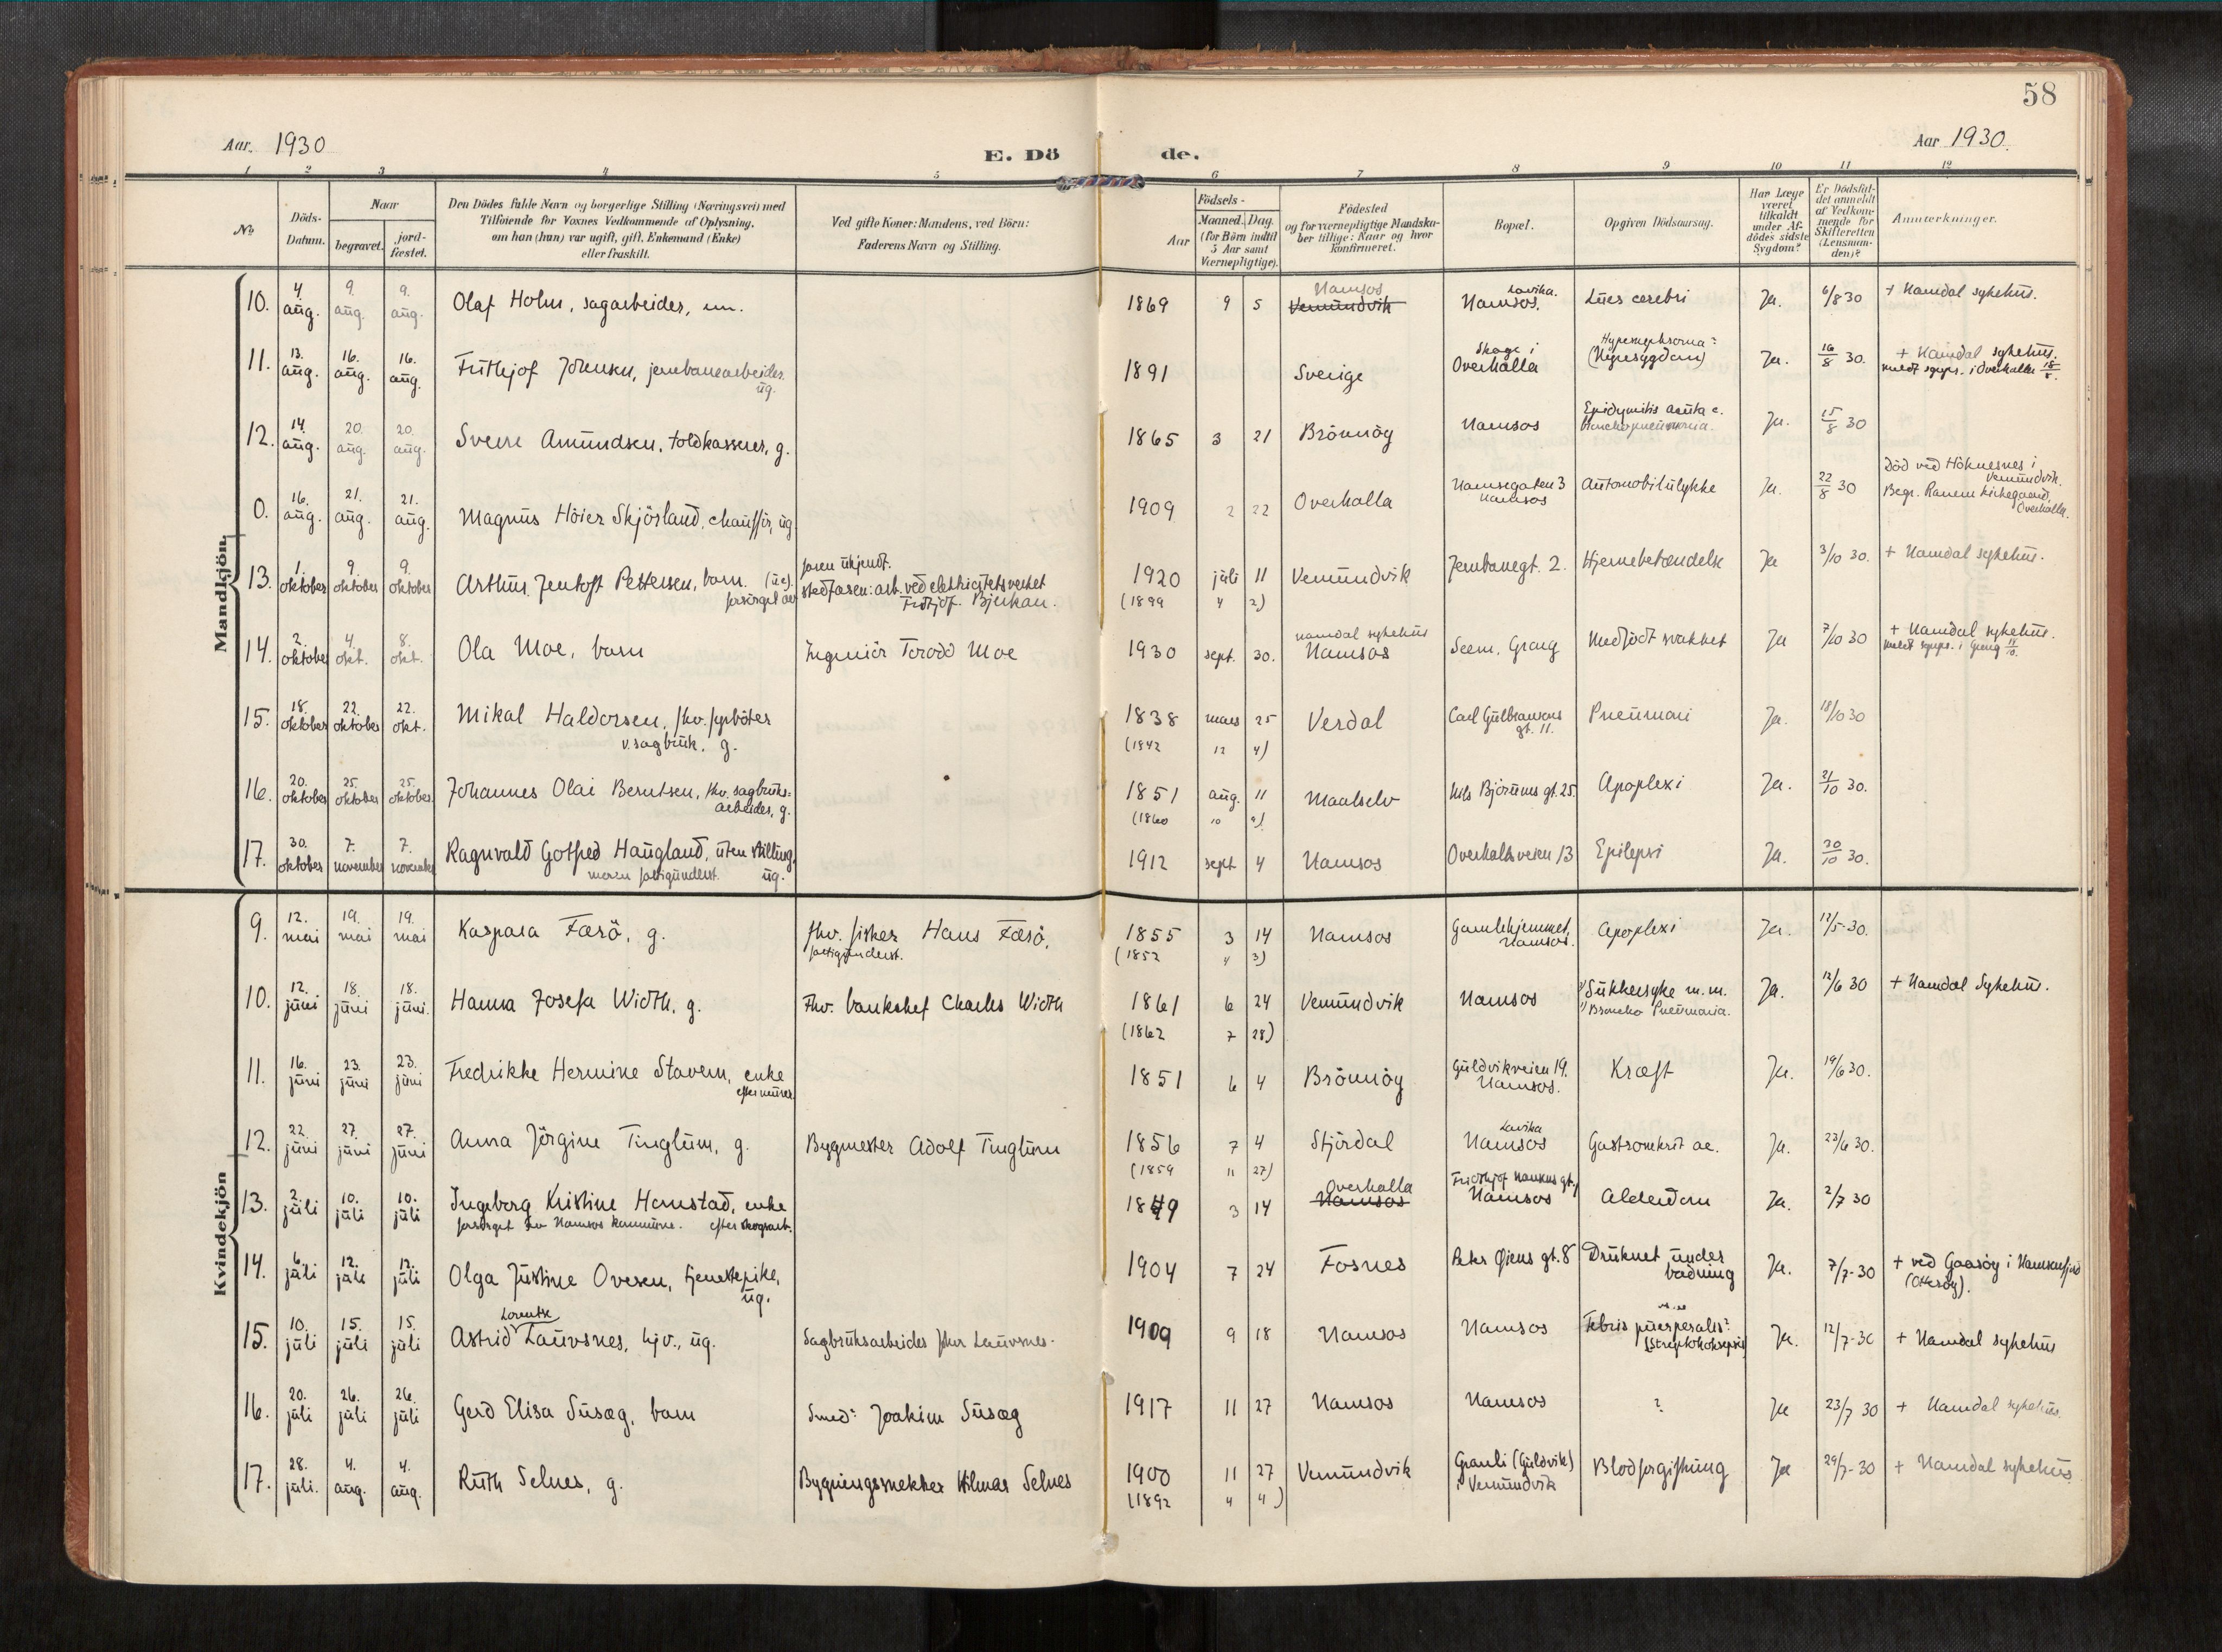 58
Aar. 1930
E. Döde.
Aar 1930.
1 2 3 4 5 6 7 8 9 10 11 12
No
Döds-Datum.
Naar begravet. jord-fæstet.
Den Dödes fulde Navn og borgerlige Stilling (Næringsvei) med
Tilföiende for Voxnes Vedkommende af Oplysning,
om han (hun) var ugift, gift, Enkemand (Enke)
eller fraskilt.
Ved gifte Koner: Mandens, ved Börn:
Faderens Navn og Stilling.
Födsels-
Aar Maaned. Dag.
(for Börn indtil
5 Aar samt
Værnepligtige).
Födested
og for værnepligtige Mandska-
ber tillige: Naar og hvor
konfirmeret.
Bopæl.
Opgiven Dödsaarsag.
Har Læge
været
tilkaldt
under Af-
dödes sidste
Sygdom?
Er Dödsfal-
det anmeldt
af Vedkom-
mende for
Skifteretten
(Lensman-
den)?
Anmærkninger.
Mandkjön.
10. 4. aug. 9. aug. 9. aug. Olaf Holm, sagarbeider, um. 1869 9 5 Namsos Vemundvik Lavika. Namsos. Lues cerebri Ja. 6/8 30 + Namdal sykehus.
11. 13. aug. 16. aug. 16. aug. Frithjof Johnsen, jernbanearbeider. ug. 1891 Sverige Skage i Overhalla (Nyresygdom) Ja. 16/8 30. + Namdal sykehus.
meldt sognepr. i Overhalla 18/8.
12. 14. aug. 20. aug. 20. aug. Sverre Amundsen, toldkasserer, g. 1865 3 21 Brönnöy Namsos Epidymitis acuta c.
Bronchopneumonia. Ja. 15/8 30
0. 16. aug. 21. aug. 21. aug. Magnus Höier Skjösland, chaufför, ug. 1909 2 22 Overhalla Namsegaten 3 Namsos Automobilulykke Ja. 22/8 30 Död ved Höknesnes i
Vemundvik.
Begr. Ranem kirkegaard,
Overhalla.
13. 1. oktober 9. oktober 9. oktober Arthur Jentoft Pettersen, barn. (u.e). forsörget av faren ukjendt.
stedfaren: arb. ved elektricitetsverket
Fridtjof Bjerkan. 1920 juli 11 Vemundvik Jernbanegt. 2. Hjernebetændelse Ja 3/10 30. + Namdal sykehus.
(1899 4 2)
14. 2. oktober 4. okt. 8. okt. Ola Moe, barn Ingeniör Torodd Moe 1930 sept. 30. Namdal sykehus Namsos Seem, Grong Medfödt svakhet Ja 7/10 30 + Namdal sykehus.
meldt sognepr. i Grong
15. 18. oktober 22. oktober 22. okt. Mikal Haldorsen, fhv. fyrböter
v. sagbruk, g. 1838 mars 25 Verdal Carl Gulbransons gt. 11. Pneumoni Ja. 18/10 30
(1842 12 4)
16. 20. oktober 25. oktober 25. oktober. Johannes Olai Berntsen, fhv. sagbruks-
arbeider, g. 1851 aug. 11 Maalselv Nils Björums gt. 25. Apoplexi Ja. 21/10 30.
(1860 10 9)
17. 30. oktober 7. november 7. november Ragnvald Gotfred Haugland, uten stilling,
moren fattigunderst. ug. 1912 sept 4 Namsos Overhallsveien 13 Epilepsi Ja. 30/10 30.
Kvindekjön
9. 12. mai 19. mai 19. mai Kaspara Færö, g. fhv. fisker Hans Færö,
fattigunderst. 1855 3 14 Namsos Gamlehjemmet, Namsos. Apoplexi Ja. 12/5-30.
(1852 4 3)
10. 12. juni 18. juni 18. juni. Hanna Josefa Width, g. Fhv. banksjef Charles Width 1861 6 24 Vemundvik Namsos Sukkersyke m.m.
Broncho Pneumonia. Ja. 12/6 30 + Namdal Sykehus.
(1862 7 28)
11. 16. juni 23. juni 23. juni Fredrikke Hermine Stavem, enke
efter murer. 1851 6 4 Brönnöy Guldvikveien 19. Namsos. Kræft Ja. 19/6 30.
12. 22. juni 27. juni 27. juni Anna Jörgine Tinglum, g. Bygmester Adolf Tinglum 1856 7 4 Stjördal Lavika Namsos Ja. 23/6 30.
(1859 11 27)
13. 2. juli 10. juli 10. juli Ingeborg Kristine Hernstad, enke
forsörget av Namsos kommune. efter skogsarb. 1849 3 14 Overhalla Namsos Fridthjof Nansens gt. Namsos Alderdom Ja. 2/7 30
14. 6. juli 12. juli 12. juli Olga Justine Ovesen, tjenestepike,
ug. 1904 7 24 Fosnes Peter Øiens gt. 8 Druknet under
badning Ja. 7/7-30 + ved Gaasöy i Namsenfjord
(Otteröy).
15. 10. juli 15. juli 15. juli Astrid Lorentse Lauvsnes, hjv., ug. Sagbruksarbeider John Lauvsnes. 1909 9 18 Namsos Namsos Febris puerperalis:
(Streptokoksepsis) Ja. 12/7-30 + Namdal sykehus
16. 20. juli 26. juli 26. juli Gerd Elisa Susæg, barn Smed: Joakim Susæg 1917 11 27 Namsos Namsos ? Ja 23/7 30 + Namdal sykehus.
17. 28. juli. 4. aug. 4. aug. Ruth Selnes, g. Bygningssnekker Hilmar Selnes 1900 11 27 Vemundvik Granli (Guldvik)
i Vemundvik Blodforgiftning Ja 29/7-30 + Namdal sykehus
(1892 4 4)